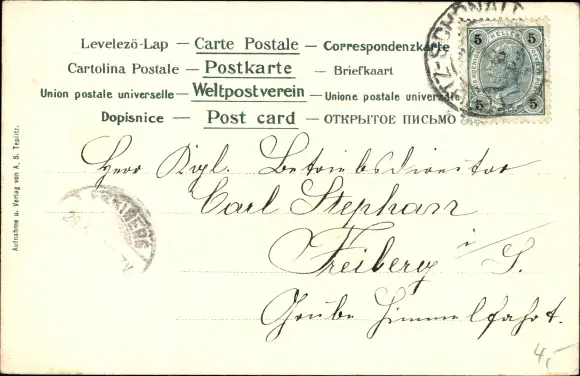 Levelező-Lap — Carte Postale — Correspondenzkarte
Cartolina Postale — Postkarte — Briefkaart
Union postale universelle — Weltpostverein — Unione postale universale
Dopisnice — Post card — ОТКРЫТОЕ ПИСЬМО
Herr Kgl. Betriebsdirector
Carl Stephan
Freiberg i S.
Grube Himmelfahrt.
Aufnahme u. Verlag von A. S. Teplitz.
5 HELLER 5
5 5
TZ-SCHÖNAU
FREIBERG
4,-